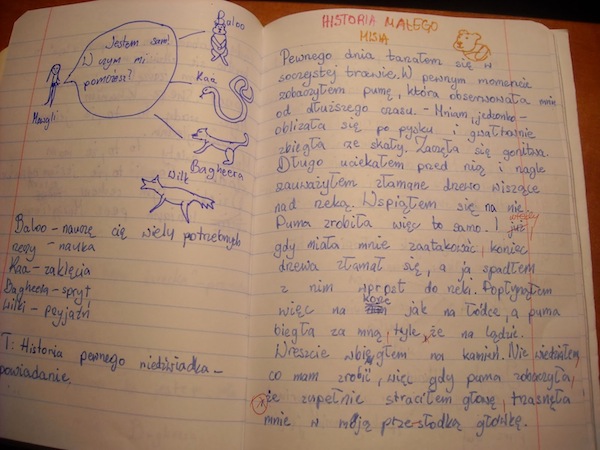 Jestem sam!
W czym mi
pomożesz?
Mowgli
Baloo
Kaa
Bagheera
Wilk
Baloo – nauczę cię wielu potrzebnych
rzeczy – nauka
Kaa – zaklęcia
Bagheera – spryt
Wilki – przyjaźń
T: Historia pewnego niedźwiadka –
powiadanie.
HISTORIA MAŁEGO
MISIA
Pewnego dnia tarzałem się w
soczystej trawie. W pewnym momencie
zobaczyłem pumę, która obserwowała mnie
od dłuższego czasu. – Mniam, jedzonko –
oblizała się po pysku i gwałtownie
zbiegła ze skały. Zaczęła się gonitwa.
Długo uciekałem przed nią i nagle
zauważyłem złamane drzewo wiszące
nad rzeką. Wspiąłem się na nie.
Puma zrobiła więc to samo. I już
gdy miała mnie zaatakować, koniec
drzewa złamał się, a ja spadłem
z nim wprost do rzeki. Popłynąłem
więc na korze jak na łódce, a puma
biegła za mną, tyle, że na lądzie.
Wreszcie wbiegłem na kamień. Nie wiedziałem,
co mam zrobić, więc gdy puma zobaczyła,
że zupełnie straciłem głowę, trzasnęła
mnie w moją przesłodką główkę.